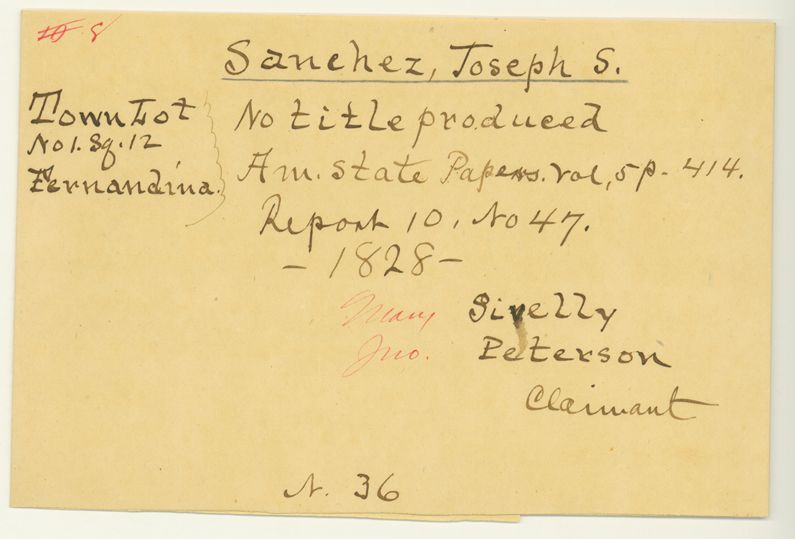 10 8
Sanchez, Joseph S.
Town Lot
No 1. Sq. 12
Fernandina.
No title produced
Am. State Papers. Vol, 5 p - 414.
Report 10, No 47.
- 1828 -
Mary Sivelly
Jno. Peterson
Claimant
N. 36